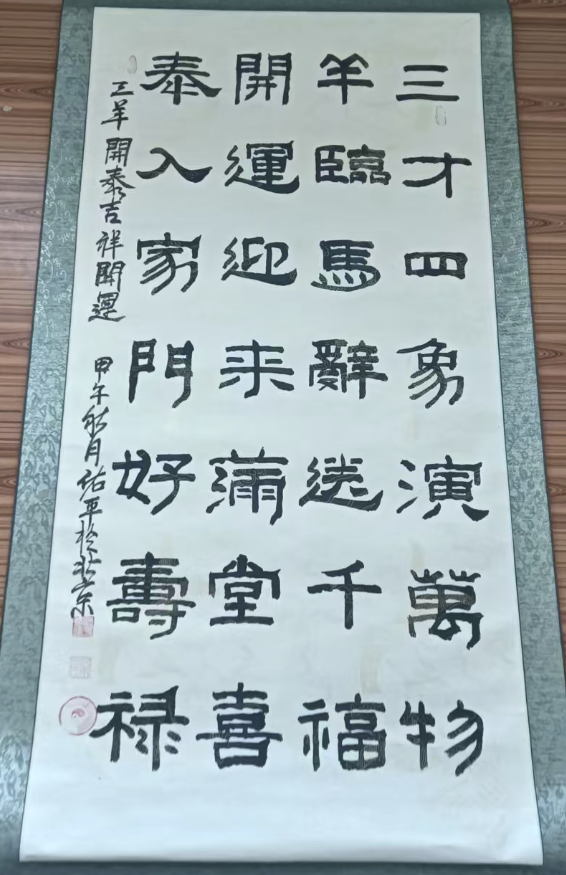 三才四象演萬物
羊臨馬辭送千福
開運迎来滿堂喜
泰入家門好壽禄
三羊開泰吉祥開運
甲午秋月佑平於北京